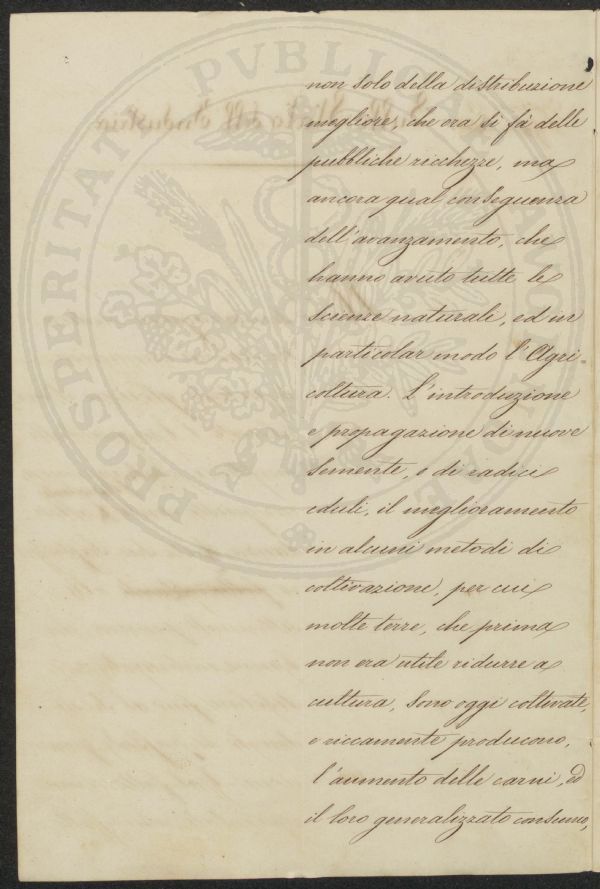 non solo della distribuzione
megliore, che ora si fà delle
pubbliche ricchezze, ma
ancora qual conseguenza
dell'avanzamento, che
hanno avuto tutte le
scienze naturale, ed in
particolar modo l'Agri-
coltura. L'introduzione
e propagazione di nuove
semente, e di radici
eduli, il meglioramento
in alcuni metodi di
coltivazione, per cui
molte terre, che prima
non era utile ridurre a
cultura, sono oggi coltivate,
e riccamente producono,
l'aumento delle carni, ed
il loro generalizzato consumo,
PROSPERITATI PVBLICAE